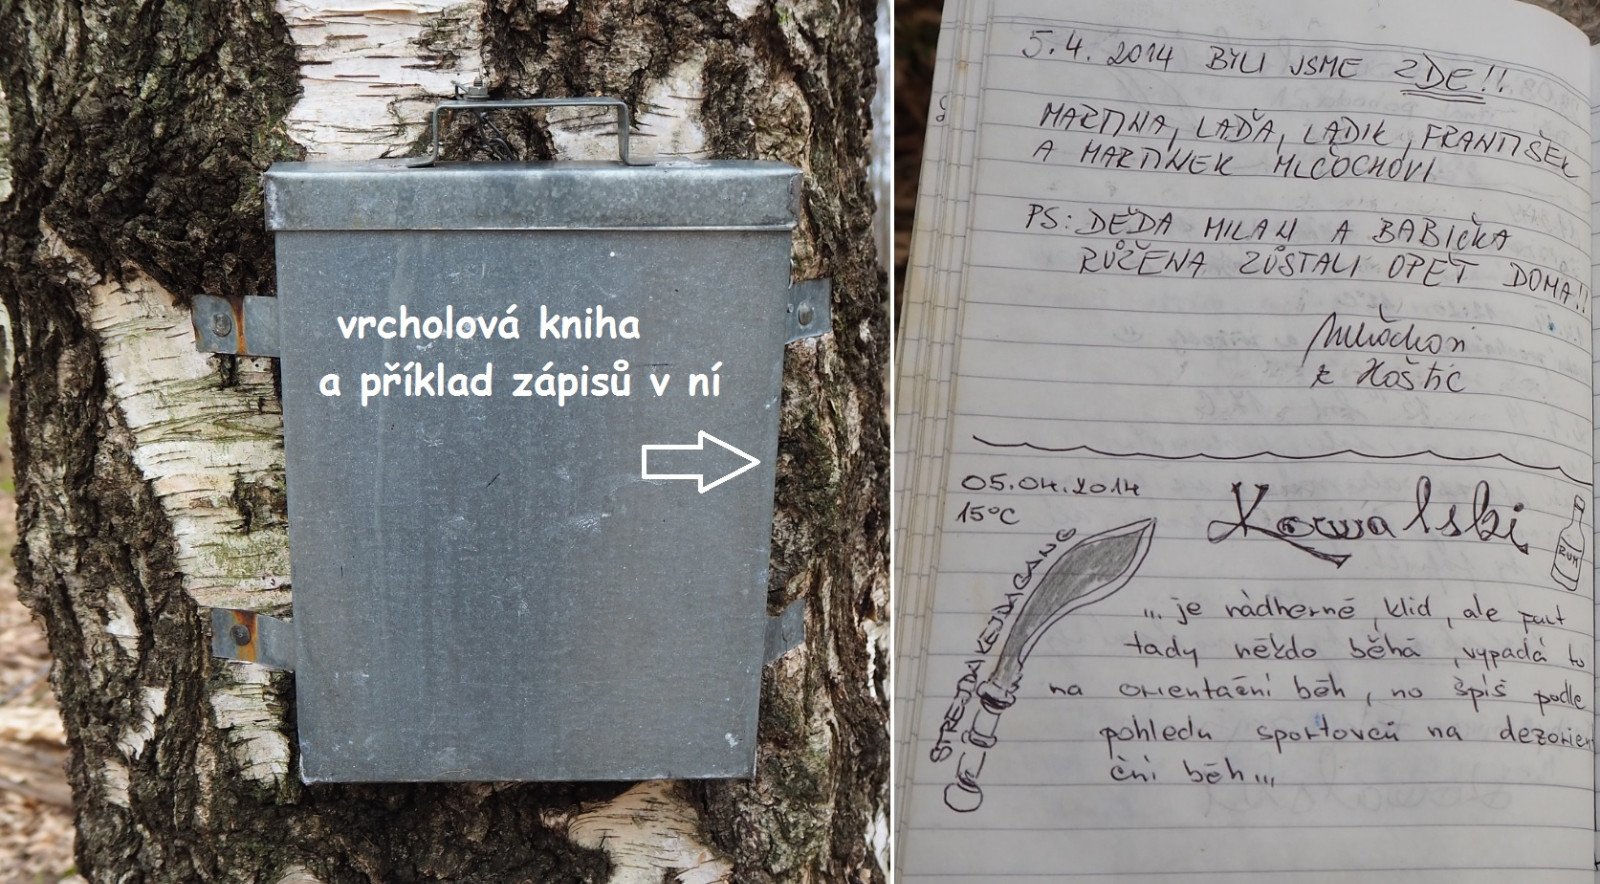 vrcholová kniha
a příklad zápisů v ní
5.4. 2014 BYLI JSME ZDE!!
MARTINA, LAĎA, LADIK, FRANTIŠEK
A MARTINEK MLČOCHOVI
PS: DĚDA MILAN A BABIČKA
RŮŽENA ZŮSTALI OPĚT DOMA!!
Mlčochovi
z Hoštic
05.04.2014
15°C
Kowalski
RUM
STREJDA KEJDA GANG
... je nádherně, klid, ale furt
tady někdo běhá, vypadá to
na orientační běh, no špíš podle
pohledu sportovců na dezorien
ční běh...